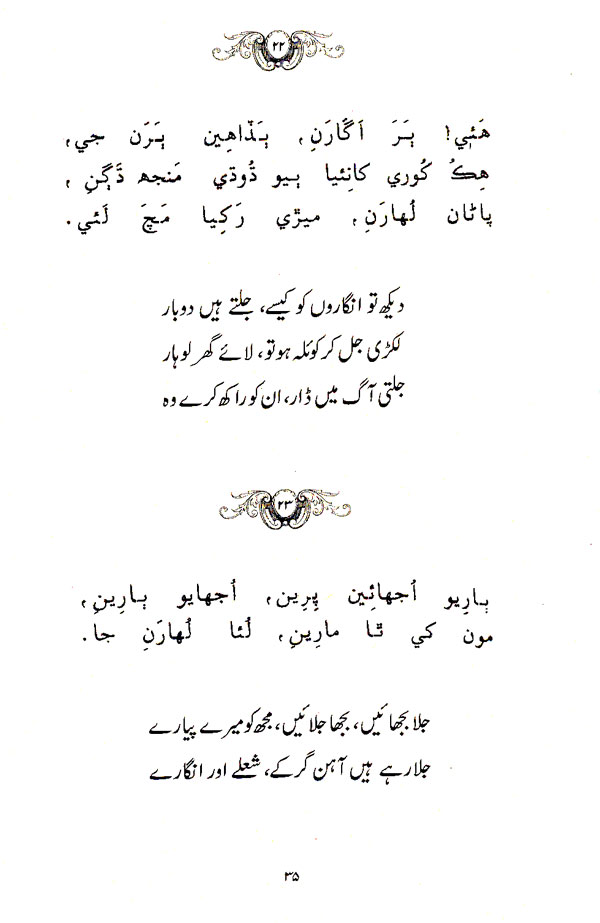 ۲۲
هَئي! ٻَرَ اَگارَنِ، ٻَڌاهِين ٻَرَن جي،
هِڪُ کُوري کانئِيا ٻيو ڌُوڌي مَنجھ ڌَڳنِ،
پاڻان لُهارَنِ، ميڙي رَکِيا مَچَ لَئي.
دیکھ تو انگاروں کو کیسے، جلتے ہیں دوبار
لکڑی جل کر کوئلہ ہو تو، لائے گھر لوہار
جلتی آگ میں ڈار، ان کو راکھ کرے وہ
۲۳
ٻارِيو اُجهائِين پِرِين، اُجهايو ٻارِينِ،
مون کي ٿا مارِينِ، لُئا لُهارَنِ جا.
جلا بجھائیں، بجھا جلائیں، مجھ کو میرے پیارے
جلا رہے ہیں آہن گر کے، شعلے اور انگارے
۳۵